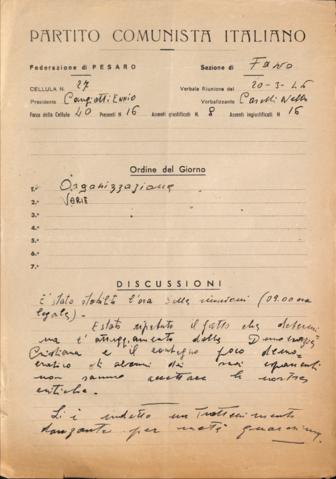 PARTITO COMUNISTA ITALIANO
Federazione di PESARO Sezione di Fano
CELLULA N. 27 Verbale Riunione del 20-3-46
Presidente Ennio Verbalizzante Caselli
Forza della Cellula 40 Presenti N 16 Assenti giustificati N. 8 Assenti ingiustificati N. 16
Ordine del Giorno
1.º Organizzazione
2.º Varie
3.º
4.º
5.º
6.º
7.º
DISCUSSIONI
E' stato stabilito l'ora delle riunioni (09.00 ora
legale).
È stato ripetuto il fatto che
l'atteggiamento della Democrazia
Cristiana e il contegno poco demo-
cratico di alcuni dei suoi esponenti
non sanno accettare le nostre
critiche.
Si è indetto un trattenimento
danzante per metà quaresima.